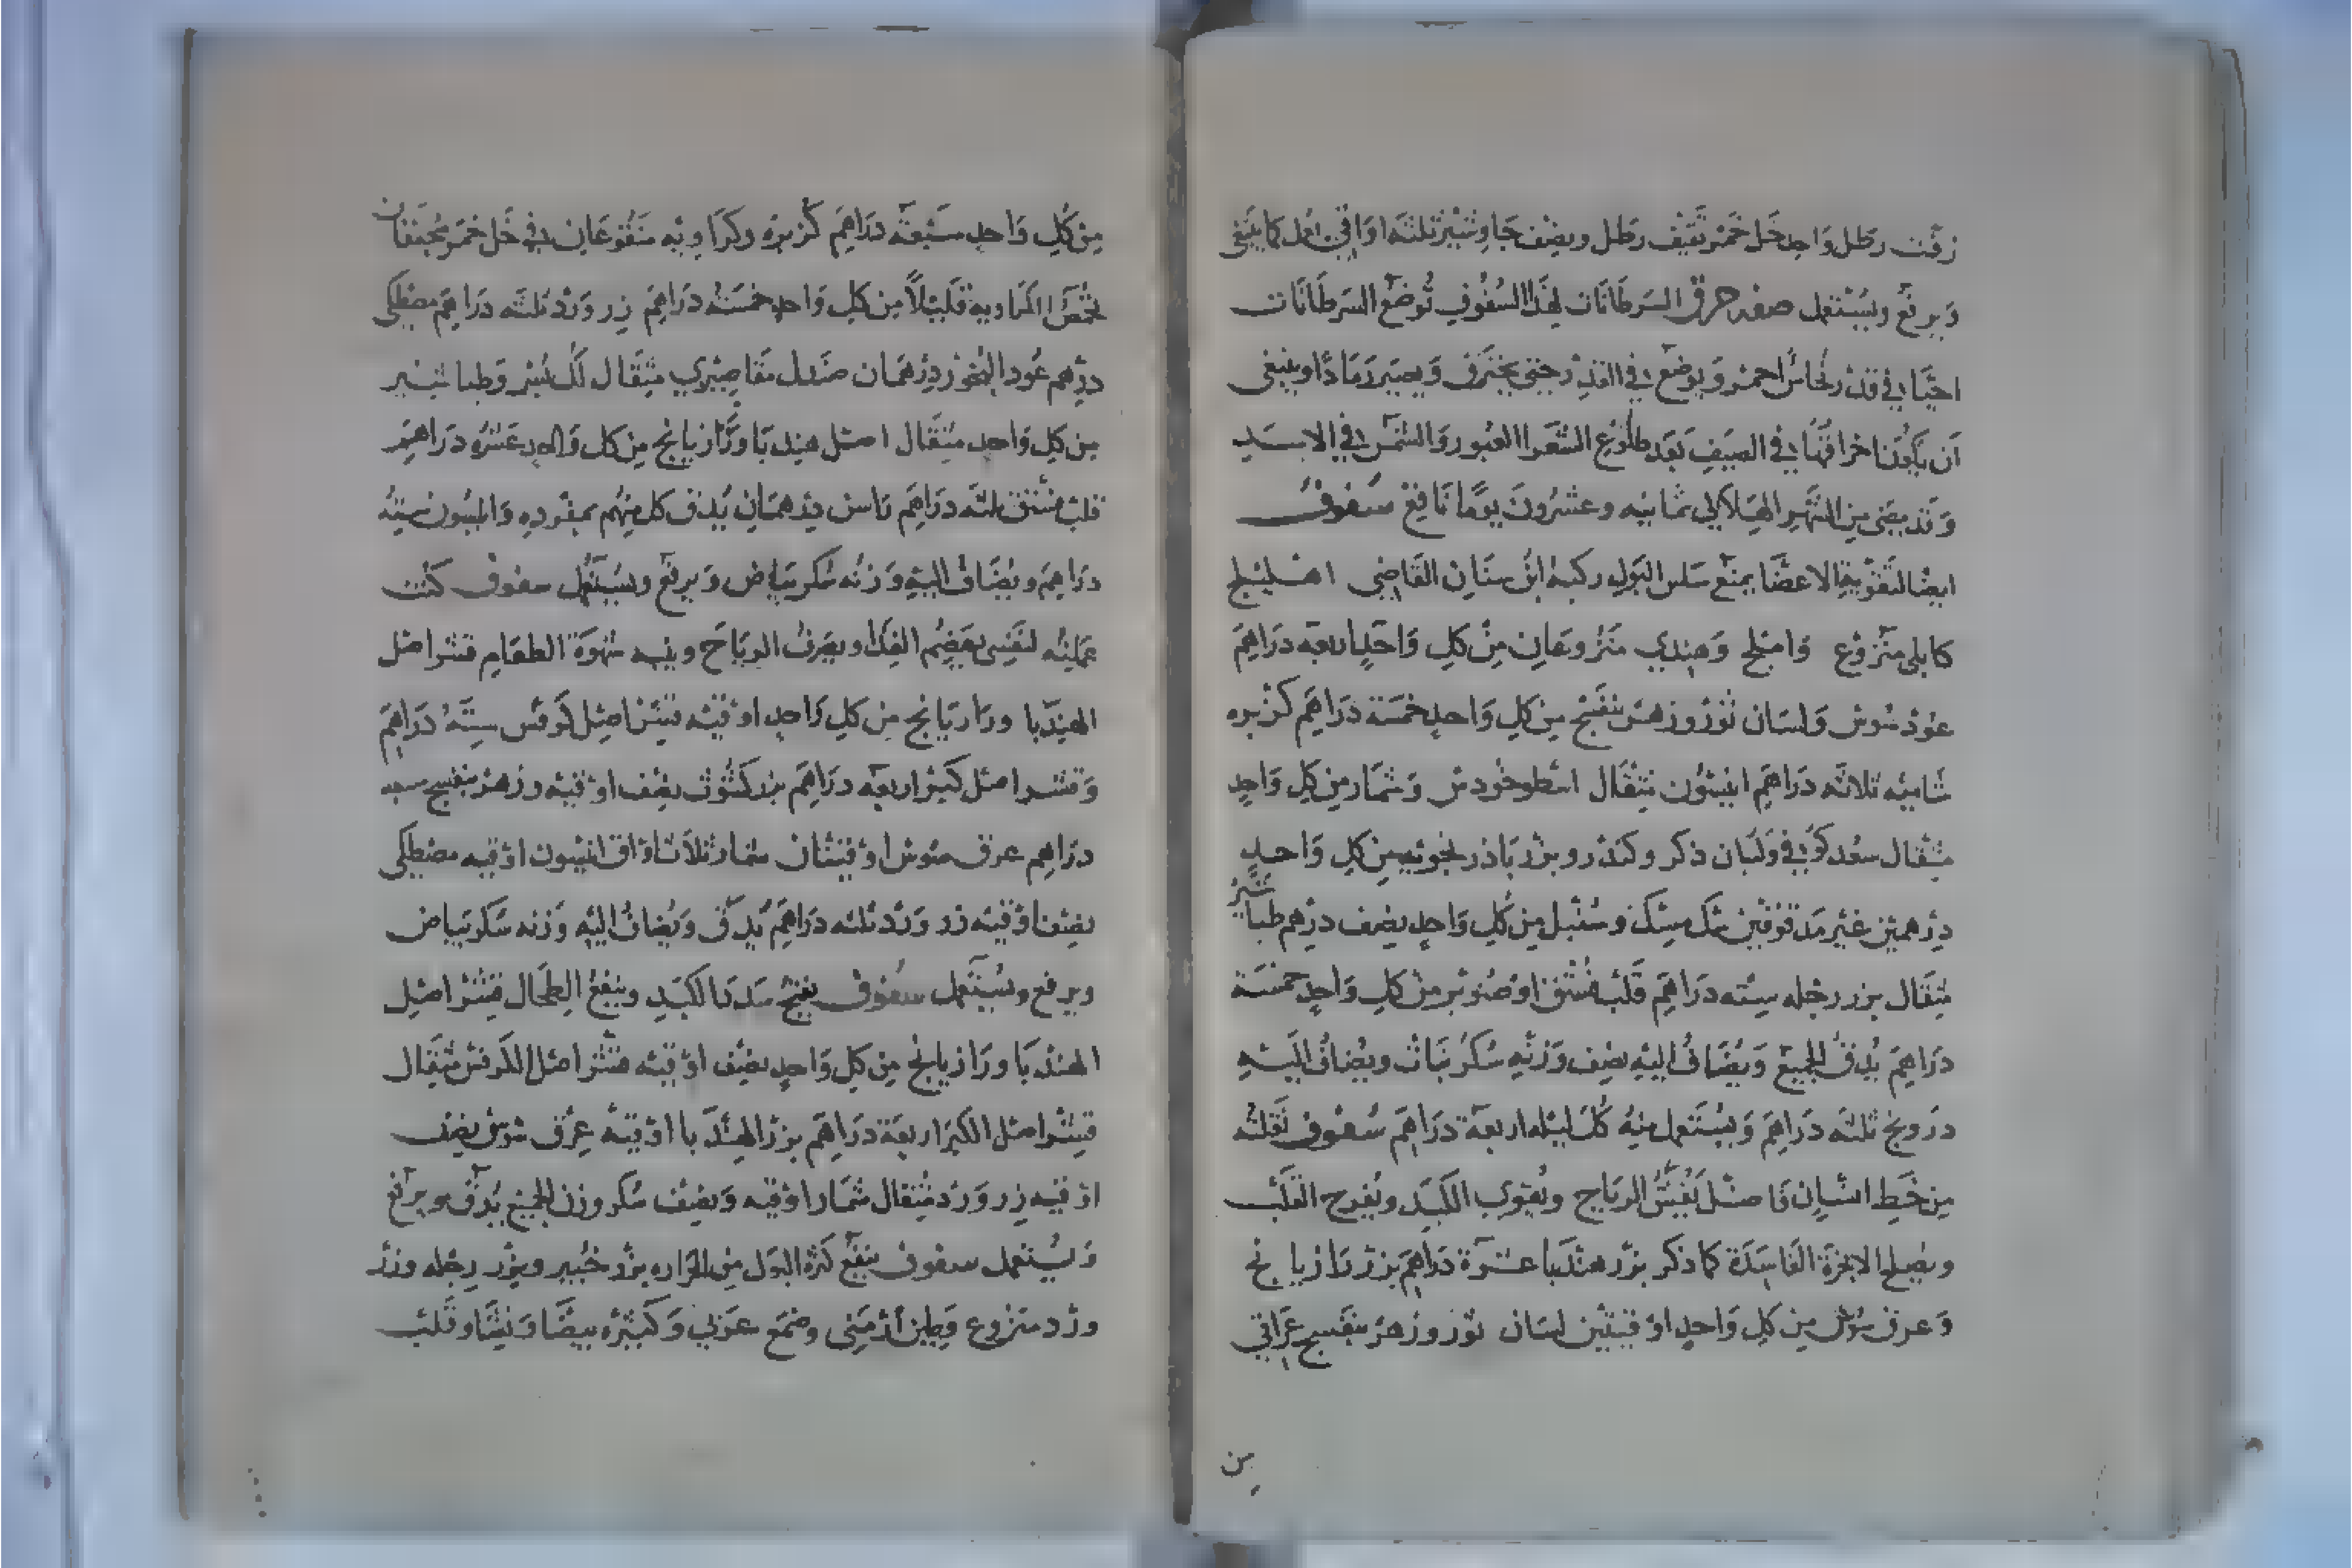 زفت رطل واحد خل خمر ثقيف رطل ونصف جاوشير ثلثه اواقي يعمل كما ينبغي
ويرفع ويستعمل صفه حرق السرطانات لهذا السفوف توضع السرطانات
احيا في قدر نحاس احمر ويوضع في القدر حتى يحترق ويصير رمادا وينبغي
ان يكون احراقها في الصيف بعد طلوع الشعرا العبور والشمس في الاسد
وقد مضى من الشهر الهلالي ثمانيه وعشرون يوما نافع سفوف
ايضا لتقوية الاعضا يمنع سلس البول ركبه ابن سنان القاضي اهليلج
كابلي منزوع واملج وهندي منزوعان من كل واحد اربعه دراهم
عود سوس ولسان ثور وزهر بنفسج من كل واحد خمسة دراهم كزبره
شاميه ثلاثه دراهم انيسون مثقال اسطوخودس وشمار من كل واحد
مثقال سعد كوفي ولبان ذكر وكندر وبزر باذرنجويه من كل واحد
درهمين غير مدقوقين سك مسك وسنبل من كل واحد نصف درهم طباشير
مثقال بزر رجله سته دراهم قلب فستق او صنوبر من كل واحد خمسة
دراهم يدق الجميع ويضاف اليه نصف وزنه سكر نبات ويضاف اليه
درونج ثلثه دراهم ويستعمل منه كل ليله اربعة دراهم سفوف نقلته
من خط انسان فاضل يفش الرياح ويقوي الكبد ويفرح القلب
ويصلح الابخرة الفاسدة كما ذكر بزر هندبا عشرة دراهم بزر رازيانج
وعرق سوس من كل واحد اوقيتين لسان ثور وزهر بنفسج عراقي
من
من كل واحد سبعة دراهم كزبره وكراويه منقوعان في خل خمر مجففان
تحمص الكراويه قليلا من كل واحد خمسه دراهم زر ورد ثلثه دراهم مصطكي
درهم عود البخور درهمان صندل مقاصيري مثقال لك بسر وطباشير
من كل واحد مثقال اصل هندبا ورازيانج من كل واحد عشره دراهم
قلب فستق ثلثه دراهم درهمان يدق كل منهم بمفرده وانيسون سته
دراهم ويضاف اليه وزنه سكر بياض ويرفع ويستعمل سفوف كنت
عملته لنفسي يهضم الغذا ويصرف الرياح وينبه شهوة الطعام قشر اصل
الهندبا ورازيانج من كل واحد اوقيه قشر اصل كرفس ستة دراهم
وقشر اصل كبر اربعه دراهم بزر كشوث نصف اوقيه وزهر بنفسج سبعه
دراهم عرق سوس اوقيتان شمار ثلاث اواق انيسون اوقيه مصطكي
نصف اوقيه زر ورد ثلثه دراهم يدق ويضاف اليه وزنه سكر بياض
ويرفع ويستعمل سفوف يفتح سدد الكبد وينفع الطحال قشر اصل
الهندبا ورازيانج من كل واحد نصف اوقيه قشر اصل الكرفس مثقال
قشر اصل الكبر اربعة دراهم بزر الهندبا اوقيه عرق سوس نصف
اوقيه زر ورد مثقال شمار اوقيه ونصف سكر وزن الجميع يدق ويرفع
ويستعمل سفوف ينفع كثرة البول من الحراره بزر خبير وبزر رجله وزر
ورد منزوع وطين ارمني وصمغ عربي وكثيره بيضا ونشا وقلب